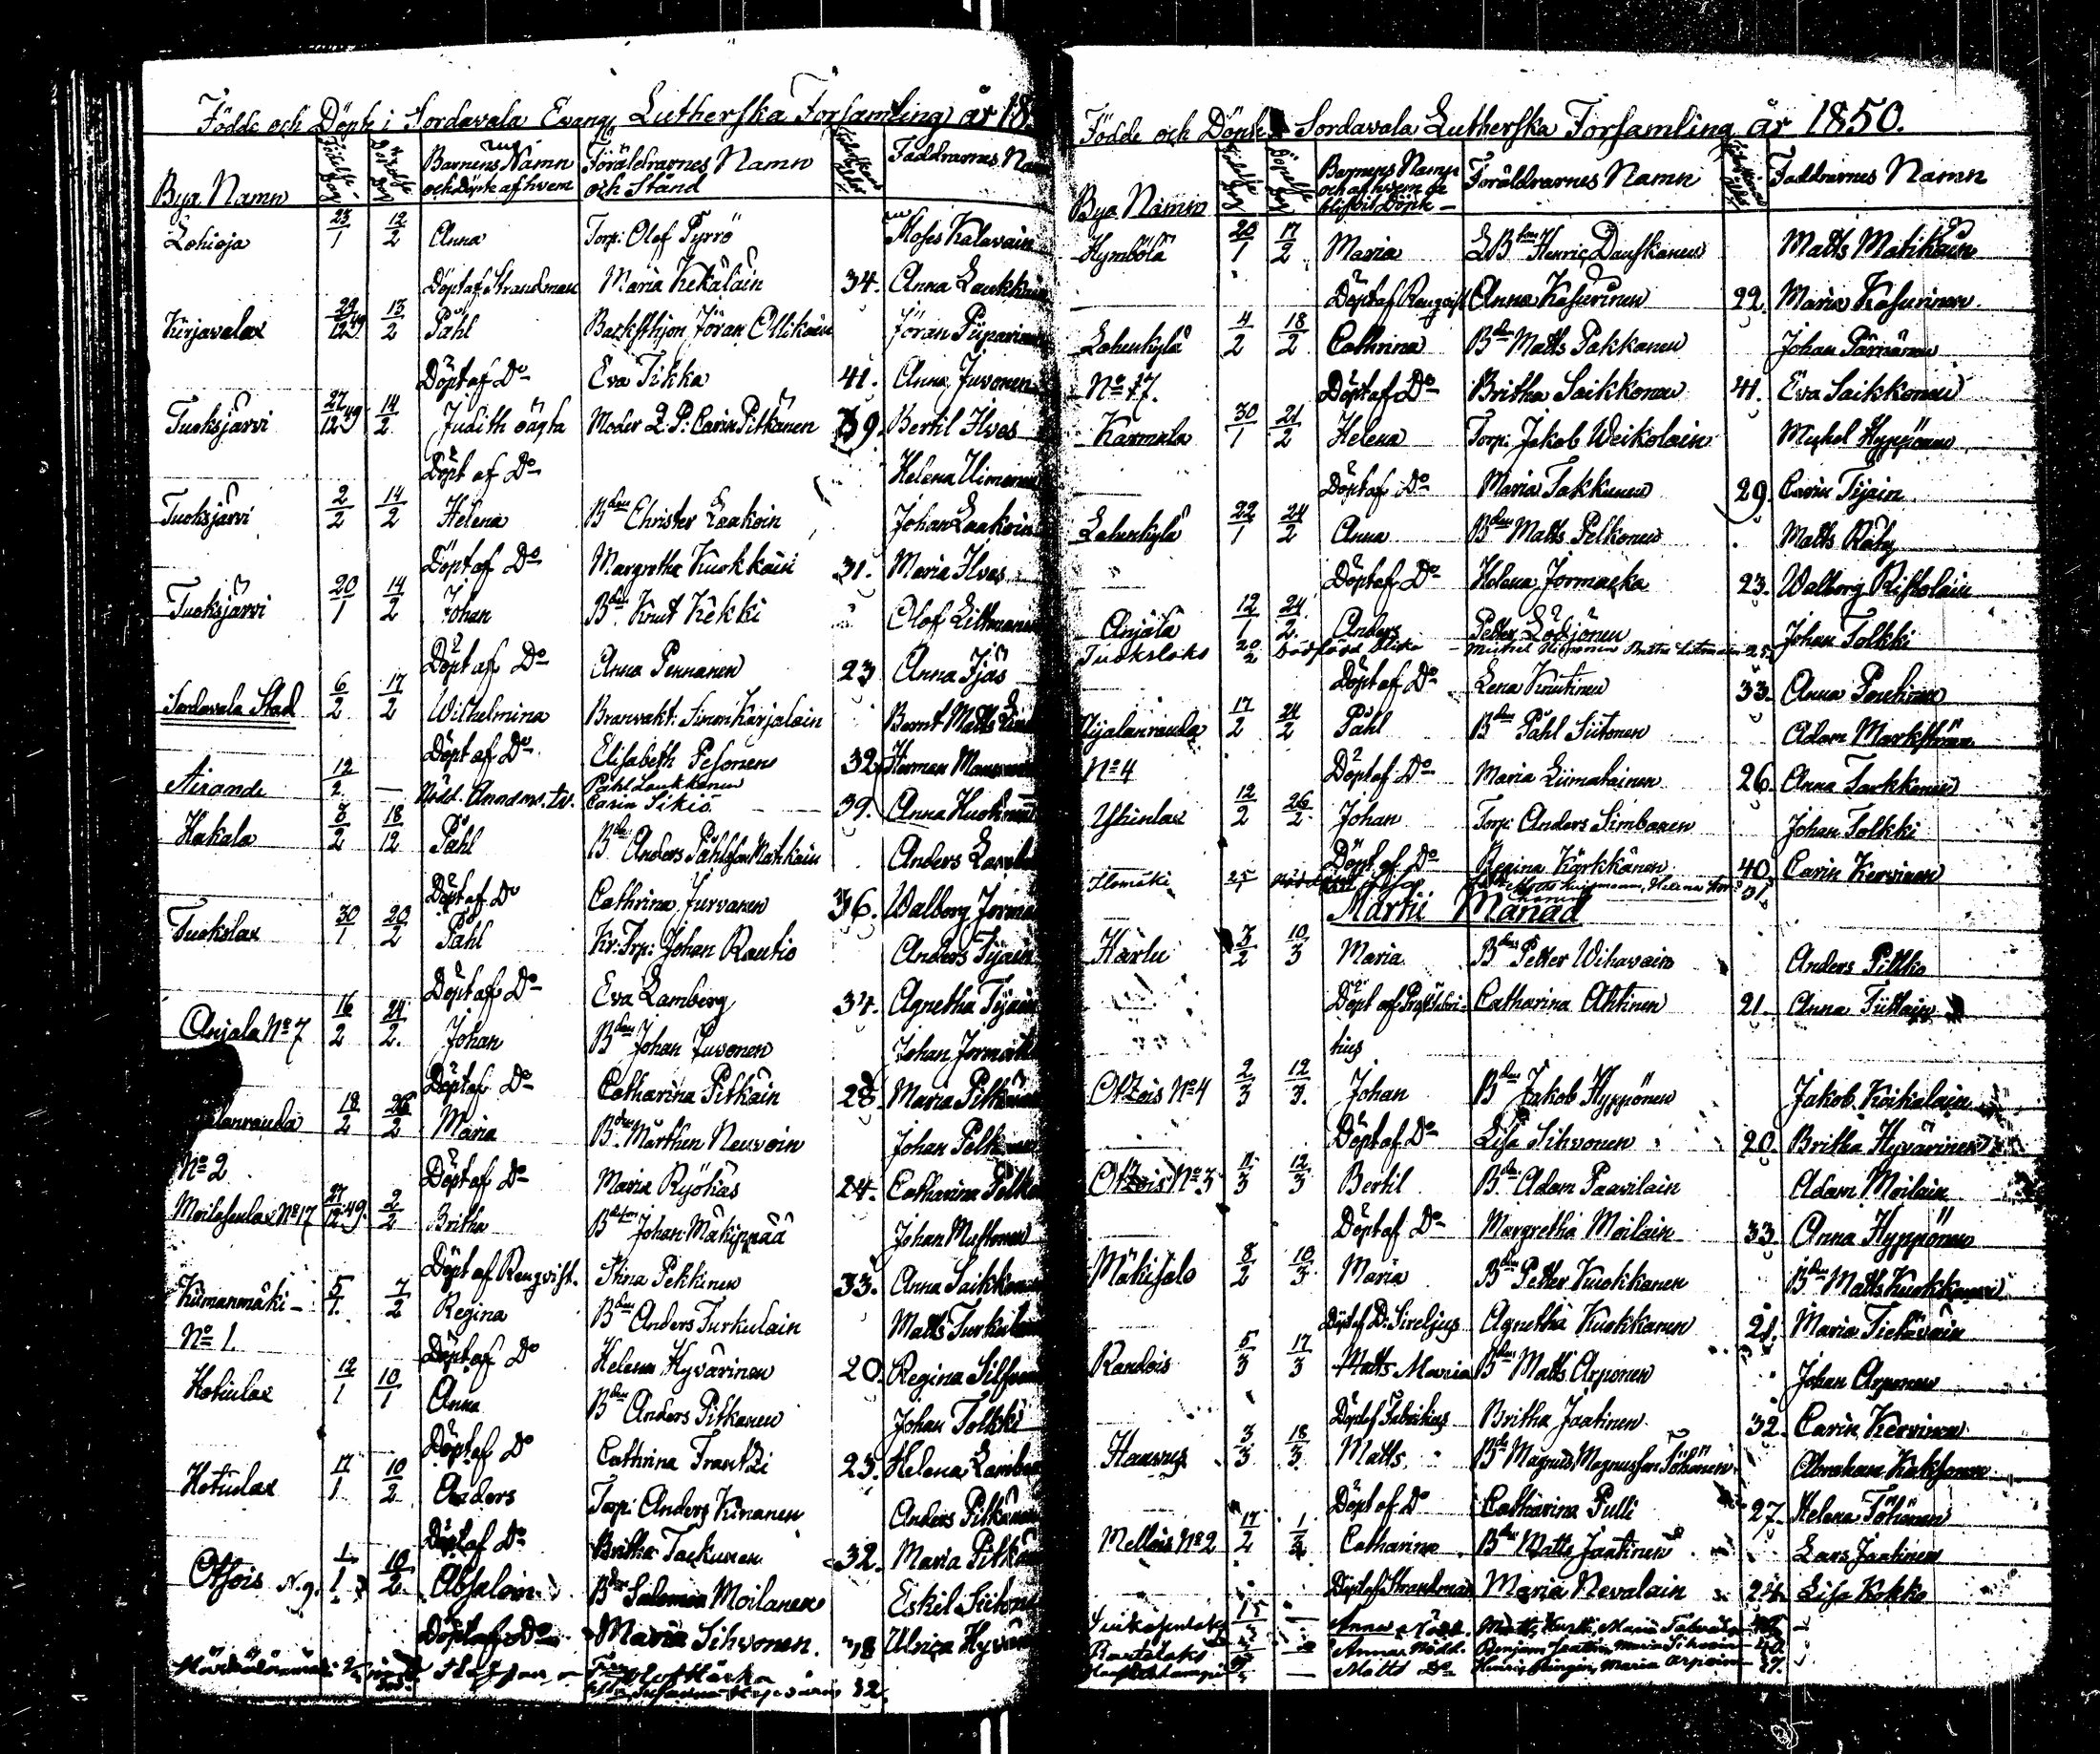 Födde och Döpte i Sordavala Evang. Lutherska Forsamling år 18
Bya Namn Födelse dag Döpelse dag Barnens Namn och Döpte af hvem Föräldrarnes Namn och Stånd Faddrarnes Na
Lohioja 23/1 12/2 Anna Torp: Olof Pyrrö Moses Kalavain
Döpt af Strandman Maria Kekäläin 34. Anna Laukkain
Kirjavalax 29/12 49 13/2 Påhl Backsthjon Jöran Ollikain Jöran Piiparinen
Döpt af Do Eva Tikka 41. Anna Juvonen
Tuoksjärvi 27/12 49 14/2 Judith oägta Moder Q. P: Carin Pitkänen 39. Bertil Ilves
Döpt af Do Helena Ilimonen
Tuoksjärvi 2/2 14/2 Helena Bden Christer Laakoin Johan Laakoin
Döpt af Do Margretha Kuokkain 31. Maria Ilves
Tuoksjärvi 20/1 14/2 Johan Bden Knut Kekki Olof Littmanen
Döpt af Do Anna Pennanen 23 Anna Ijäs
Sordavala Stad 6/2 17/2 Wilhelmina Branvakt: Simon Karjalain Bernt Matts
Döpt af Do Elisabeth Pesonen 32. Herman
Airanne 12/2 — Påhl Laukkanen
Carin Sikiö 39. Anna
Hakala 8/2 18/12 Påhl Bden Anders Påhlsson Matikain Anders
Döpt af Do Cathrina Jurvanen 36. Walborg Jorma
Tuokslax 30/1 20/2 Påhl Kr: Trp: Johan Rautio Anders Tijain
Döpt af Do Eva Lamberg 34. Agnetha Tijain
Anjala No 7 16/2 24/2. Johan Bden Johan Juvonen Johan Jormak
Döpt af Do Catharina Pitkäin 28. Maria Pitkä
lanranda 18/2 26/2 Maria Bden Mårthen Neuvoin Johan Pelk
No 2 Döpt af Do Maria Ryökäs 24. Catharina Pelko
Moilasenlax No 17 27/12 49. 2/2 Britha Bdson Johan Mäkipää Johan Mustonen
Döpt af Rengvist. Stina Pekkinen 33. Anna Saikkonen
Kiimanmäki - 5/1. 7/2 Regina Bden Anders Turkulain Matts Turkulain
No 1. Döpt af Do Helena Hyvärinen 20. Regina Silfven
Hotinlax 12/1 10/1 Anna Bden Anders Pitkänen Johan Tolkki
Döpt af Do Cathrina Frantzi 23. Helena Lamber
Hotinlax 17/1 10/2 Anders Torp: Anders Kinanen Anders Pitkänen
Döpt af Do Britha Tackunen 32. Maria Pitkä
Otsois N. 9. 1/1 10/2 Absalom Bden Salomon Moilanen Eskil Siitone
Döpt af Do Maria Sihvonen. 38 Ulrica Hyvä
32.
Födde och Döpte i Sordavala Lutherska Forsamling år 1850.
Bya Namn Födelse dag Döpelse dag Barnens Namn och af hvem de blifvit Döpte — Föräldrarnes Namn Faddrarnes Namn
Hymbölä 20/1 17/2 Maria Henric Dauskanen Matts Matikain
Döpt af Rengvist Anna Kasurinen 22. Maria Kasurinen
Lahenkylä 4/2 18/2 Cathrina Bden Matts Pakkanen Johan Pärnänen
No 17. Döpt af Do Britha Saikkonen 41. Eva Saikkonen
Karmala 30/1 21/2 Helena Torp: Jakob Weikolain Michel Hyppönen
Döpt af Do Maria Takkunen 29. Carin Tijain
Lahenkylä 22/1 24/2 Anna Bden Matts Pelkonen Matts Räty
Döpt af Do Helena Jormacka 23. Walborg Ristolain
Anjala 12/1 24/2. Anders Petter Lödjönen Johan Tolkki
Tuokslaks 20/2 dödfödd flicka 25.
Döpt af Do Lena Knutinen 33. Anna
Tijalanranda 17/2 24/2 Påhl Bden Påhl Siitonen Adam Markström
No 4 Döpt af Do Maria Liimatainen 26. Anna Tarkkonen
Yhinlax 12/2 26/2 Johan Torp: Anders Simbanen Johan Tolkki
Döpt af Do Regina Kärkkänen 40. Carin Kervinen
Ilomäki 25
Martii Månad
Harlu 7/2 10/3 Maria Bden Petter Wihavain Anders Pitkä
Döpt af Prost Fabri- Catharina Ahtinen 21. Anna Tiittain
tius
Otzois No 4 2/3 12/3. Johan Bden Jakob Hyppönen Jakob Koikalain
Döpt af Do Lisa Sihvonen 20. Britha Hyvärinen
Otzois No 3 11/3 12/3 Bertil Bden Adam Paavilain Adam Moilain
Döpt af Do Margretha Moilain 33 Anna Hyppönen
Mäkisalo 8/2 10/3. Maria Bden Petter Kuokkanen Bden Matts Kuokkanen
Döpt af D. Sirelius Agnetha Kuokkanen 21. Maria Tiekäväin
Randois 5/3 17/3 Matts Maria Bden Matts Arponen Johan Arponen
Döpt af Fabritius Britha Jaatinen 32. Carin Kervinen
Haavus 3/3 18/3 Matts Bden Magnus Magnusson Töhönen Abraham Kaksonen
Döpt af Do Catharina Pulli 27. Helena Töhönen
Mellois No 2 17/2 1/3 Catharina Bden Matts Jaatinen Lars Jaatinen
Döpt af Strandman Maria Nevalain 24. Lisa Kokko
Anna Nödd. Matts
Anna Nödd. Benjam Jaatin, Maria Sihvoin 40.
Matts Do Henric Maria Arpoin 37.